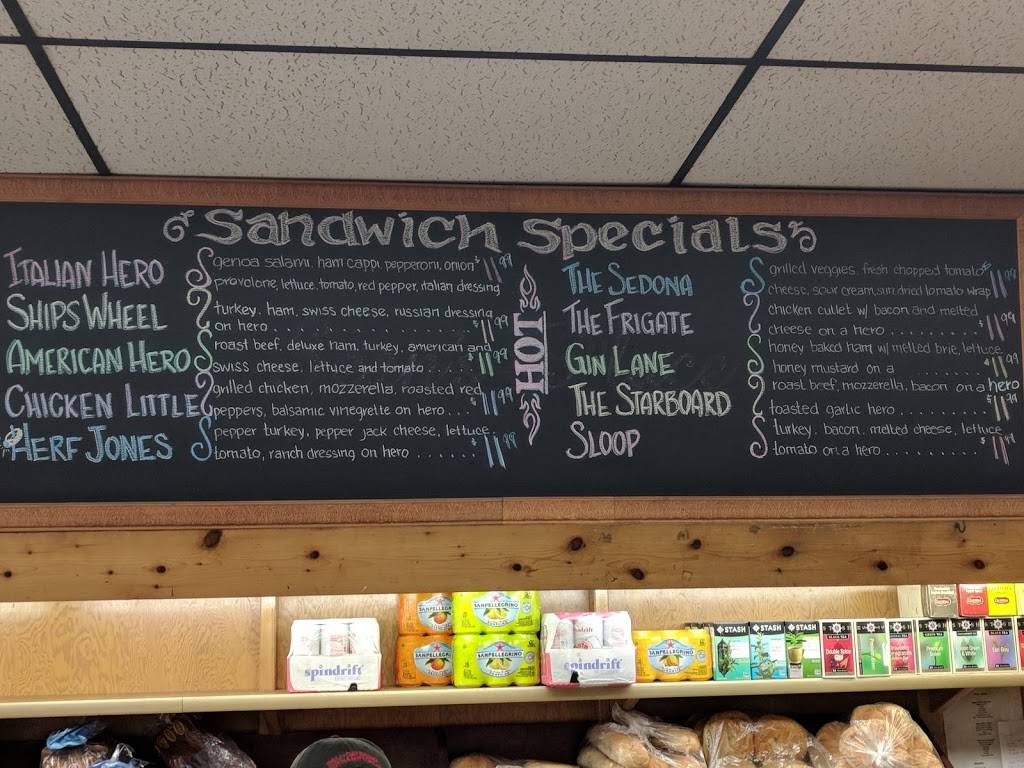 Sandwich Specials
ITALIAN HERO
genoa salami, ham cappi, pepperoni, onion $11.99
provolone, lettuce, tomato, red pepper, italian dressing
SHIPS WHEEL
turkey, ham, swiss cheese, russian dressing
on hero . . . . . . . . . . . . . . . . $11.99
AMERICAN HERO
roast beef, deluxe ham, turkey, american and
swiss cheese, lettuce and tomato . . . $11.99
CHICKEN LITTLE
grilled chicken, mozzerella, roasted red
peppers, balsamic vinegrette on hero . . . $11.99
HERF JONES
pepper turkey, pepper jack cheese, lettuce,
tomato, ranch dressing on hero . . . . . . $11.99
HOT
THE SEDONA
grilled veggies, fresh chopped tomato $11.99
cheese, sour cream, sundried tomato wrap
THE FRIGATE
chicken cutlet w/ bacon and melted
cheese on a hero . . . . . . . . . . . $11.99
GIN LANE
honey baked ham w/ melted brie, lettuce
honey mustard on a . . . . . . . $11.99
hero
THE STARBOARD
roast beef, mozzerella, bacon on a
toasted garlic hero . . . . . . . . . $11.99
SLOOP
turkey, bacon, melted cheese, lettuce
tomato on a hero . . . . . . . . . $11.99
spindrift
SANPELLEGRINO
SANPELLEGRINO
SANPELLEGRINO
SANPELLEGRINO
spindrift
SANPELLEGRINO
STASH
STASH
STASH